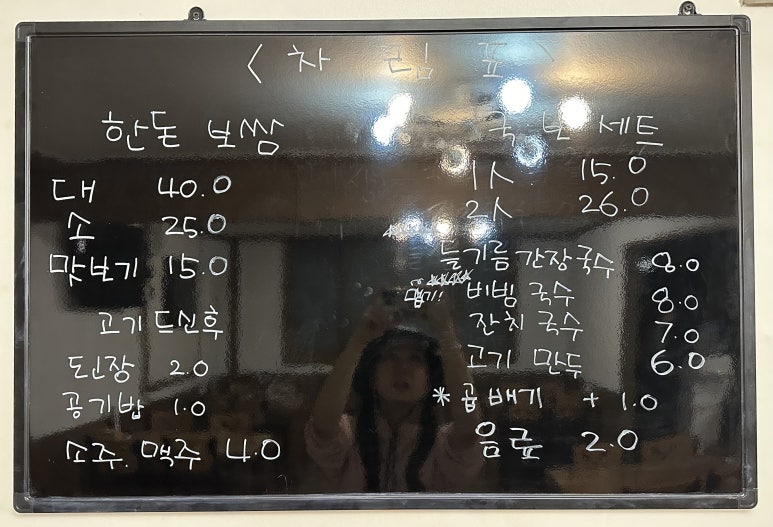 < 차 림 표 >
한돈 보쌈
대 40.0
소 25.0
맛보기 15.0
고기 드신후
된장 2.0
공기밥 1.0
소주, 맥주 4.0
국 보 세트
1人 15.0
2人 26.0
들기름 간장국수 8.0
비빔 국수 8.0
잔치 국수 7.0
고기 만두 6.0
* 곱배기 + 1.0
음료 2.0